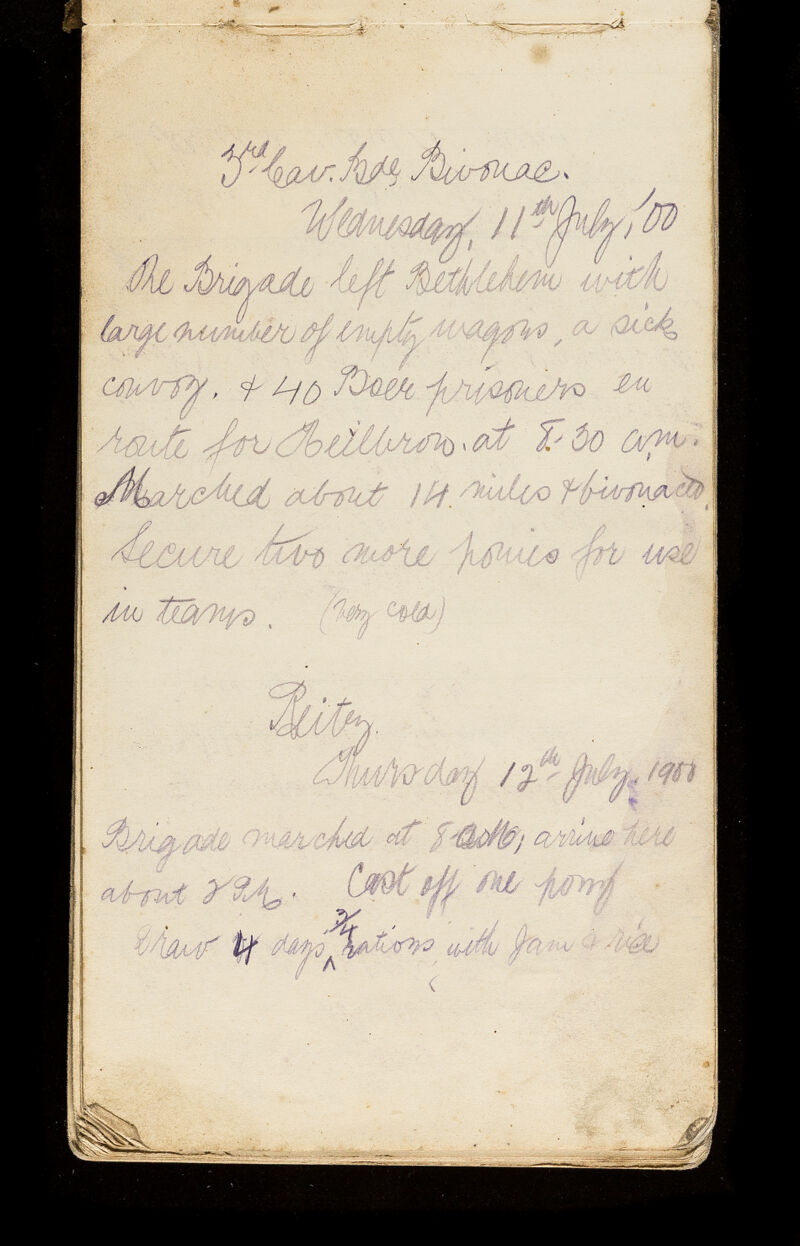 3rd Cav. Bde, Bivouac.
Wednesday, 11th July, '00
The Brigade left Bethlehem with
large number of empty wagons, a sick
convoy. & 40 Boer prisoners en
route for Heilbron. at 8.30 am.
Marched about 14 miles & bivouaced.
Secure two more ponies for use
in teams. (very cold)
Reitz
Thursday 12th July, 1900
Brigade marched at 8 AM, arrive here
about 2 PM. Cast off one pony
Draw 4 days ^ 3/4 rations, with Jam & rice